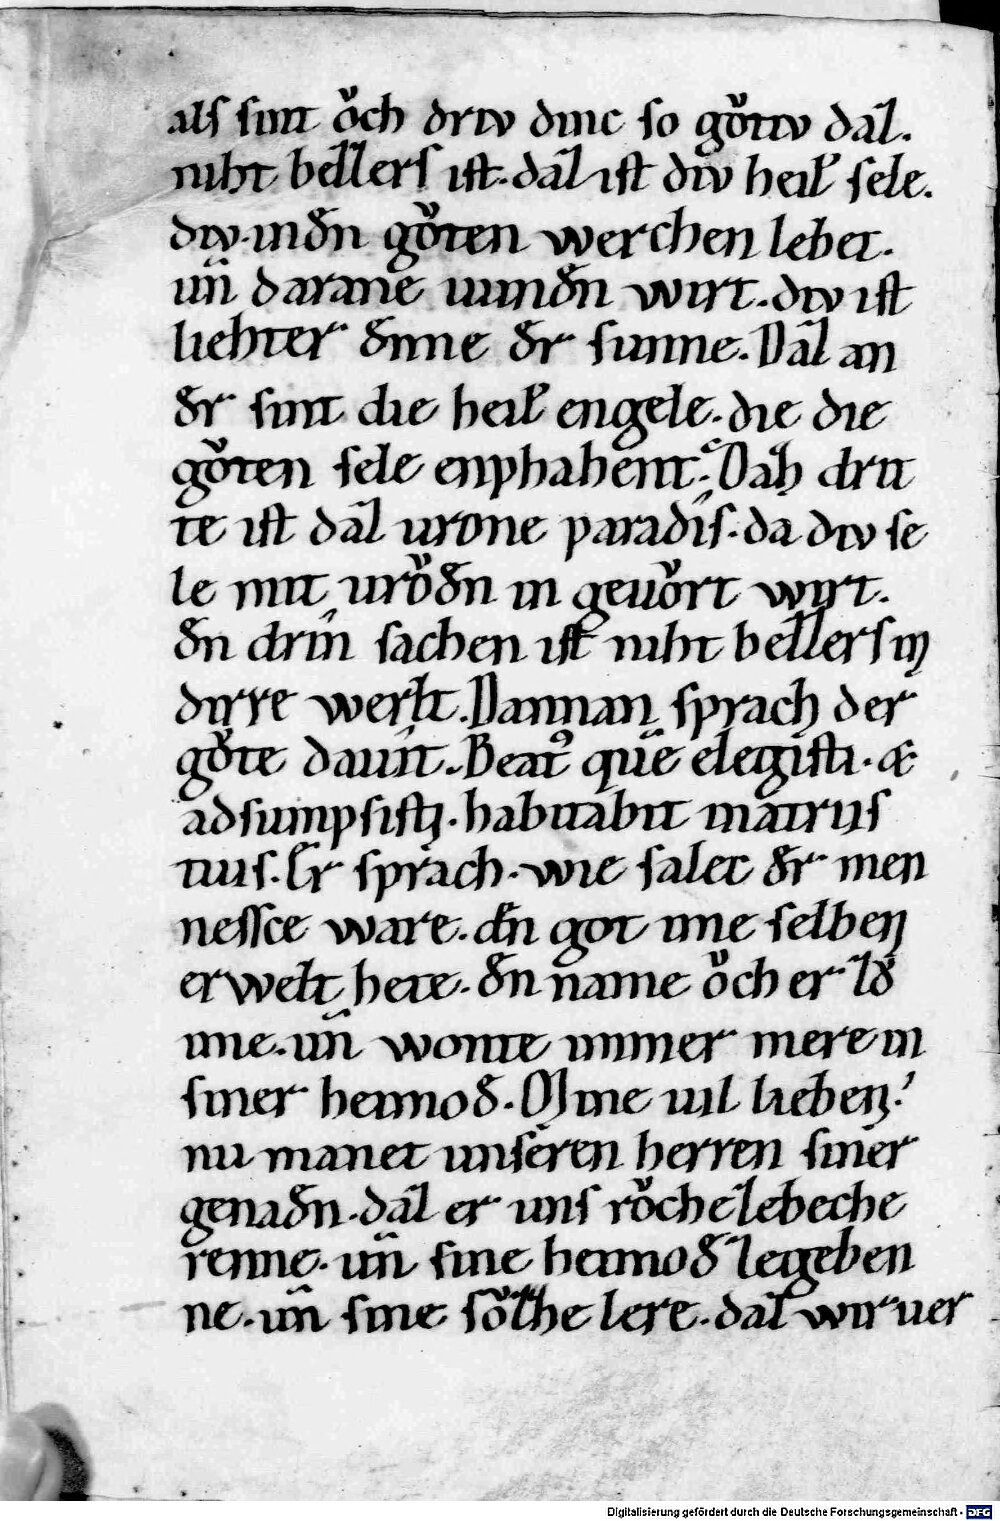 als sint oͮch driv dinc so goͮtiv daz.
niht bezzers ist. daz ist div heil' sele.
div in dͤn goͮten werchen lebet.
un̄ darane uundͤn wirt. div ist
liehter dͤnne dͤr sunne. Daz an
dͤr sint die heil' engele. die die
goͮten sele enphahent. Daz drit
te ist daz urone paradîs. da div se
le mit uroͮdͤn in geuoͮrt wirt.
dͤn drin sachen ist niht bezzers in
dirre werlt. Dannan sprach der
goͮte dauit. Beat9 quē elegisti. &
adsumpsisti. habitabit in atriis
tuis. Er sprach. wie salec dͤr men
nessce ware. dͤn got ime selben
erwelt hete. dͤn name oͮch er zoͮ
ime. un̄ wonte immer mere in
siner heimodͤ. O mine uil lieben!
nu manet unseren herren siner
genadͤn. daz er uns roͮche zebeche
renne. un̄ sine heimodͤ zegeben
ne. un̄ sine soͮlhe lere. daz wir uer
Digitalisierung gefördert durch die Deutsche Forschungsgemeinschaft - DFG